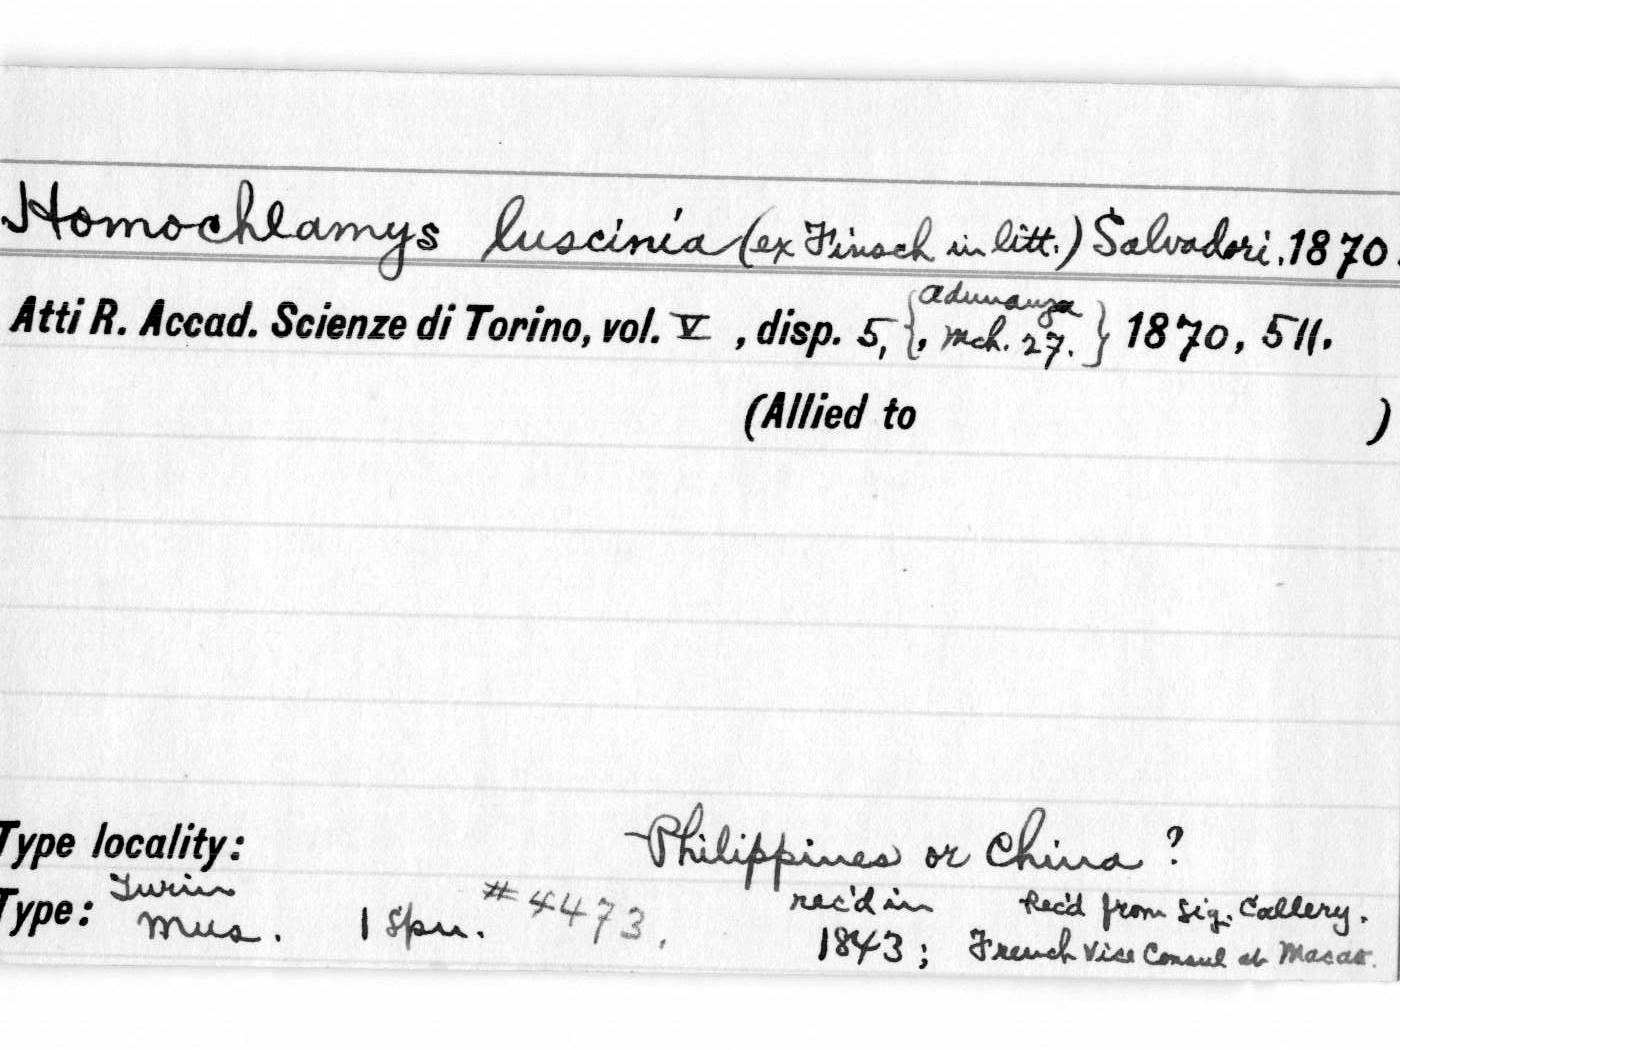 Homochlamys luscinia (ex Finsch in litt.) Salvadori. 1870.
Atti R. Accad. Scienze di Torino, vol. V , disp. 5, {, adunanza Mch. 27. } 1870, 511.
(Allied to )
Type locality: Philippines or China ?
Type: Turin Mus. 1 Spn. #4473. rec'd in 1843; Rec'd from Sig. Callery. French Vice Consul at Macao.